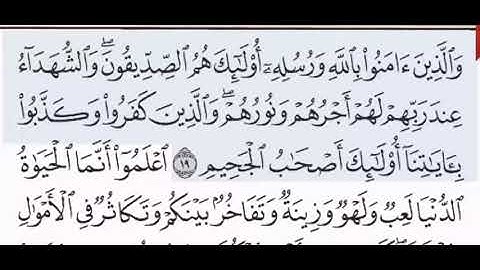 وَٱلَّذِينَ ءَامَنُوا۟ بِٱللَّهِ وَرُسُلِهِۦٓ أُو۟لَـٰٓئِكَ هُمُ ٱلصِّدِّيقُونَ ۖ وَٱلشُّهَدَآءُ
عِندَ رَبِّهِمْ لَهُمْ أَجْرُهُمْ وَنُورُهُمْ ۖ وَٱلَّذِينَ كَفَرُوا۟ وَكَذَّبُوا۟
بِـَٔايَـٰتِنَآ أُو۟لَـٰٓئِكَ أَصْحَـٰبُ ٱلْجَحِيمِ ١٩ ٱعْلَمُوٓا۟ أَنَّمَا ٱلْحَيَوٰةُ
ٱلدُّنْيَا لَعِبٌ وَلَهْوٌ وَزِينَةٌ وَتَفَاخُرٌۢ بَيْنَكُمْ وَتَكَاثُرٌ فِى ٱلْأَمْوَٰلِ